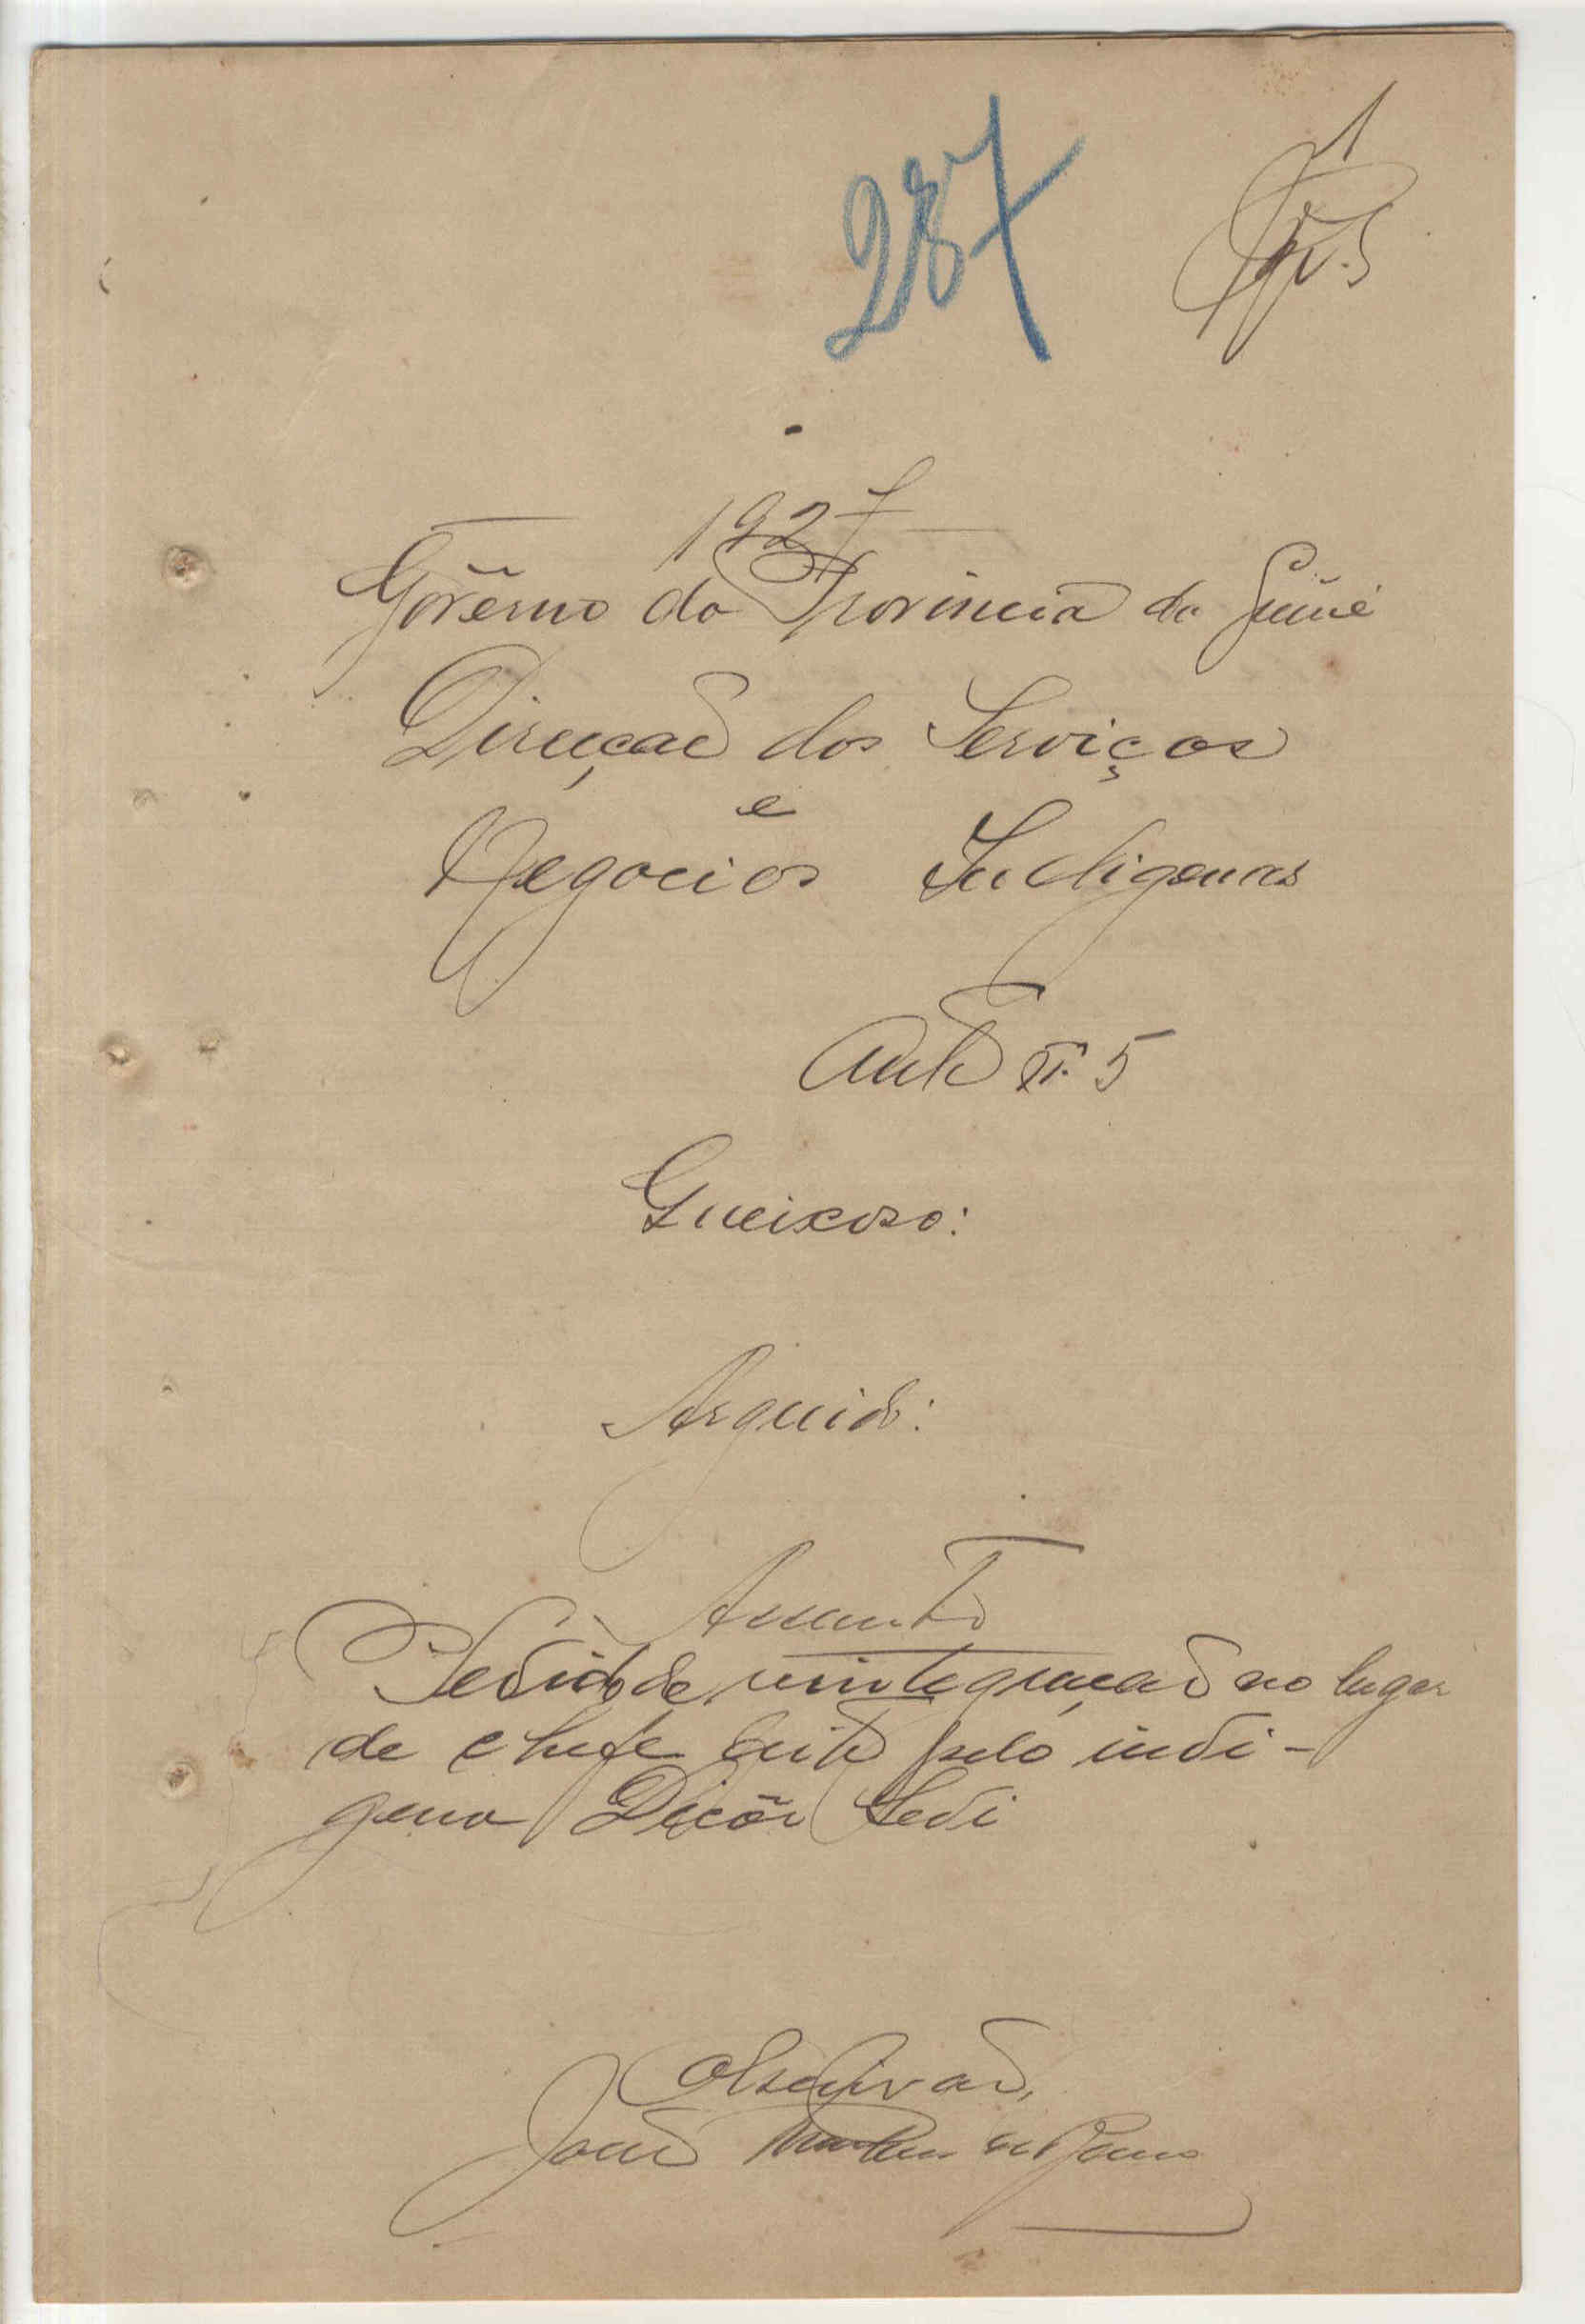 287
1
1927
Govêrno da Provincia da Guiné
Direcção dos Serviços
e
Negocios Indigenas
Auto nº 5
Queixoso:
Arguido:
Assunto
Pedido de reintegração no lugar
de chefe feito pelo indi-
gena Sedi
O escrivão,
João Martins